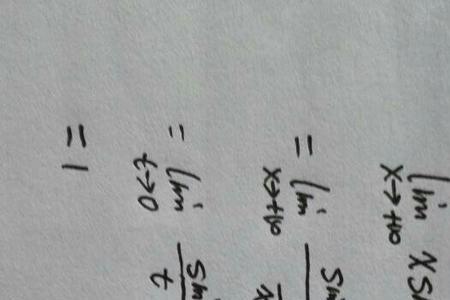 lim x→+∞ x s
= lim x→+∞ sin
= lim t→0 sin / t
= 1